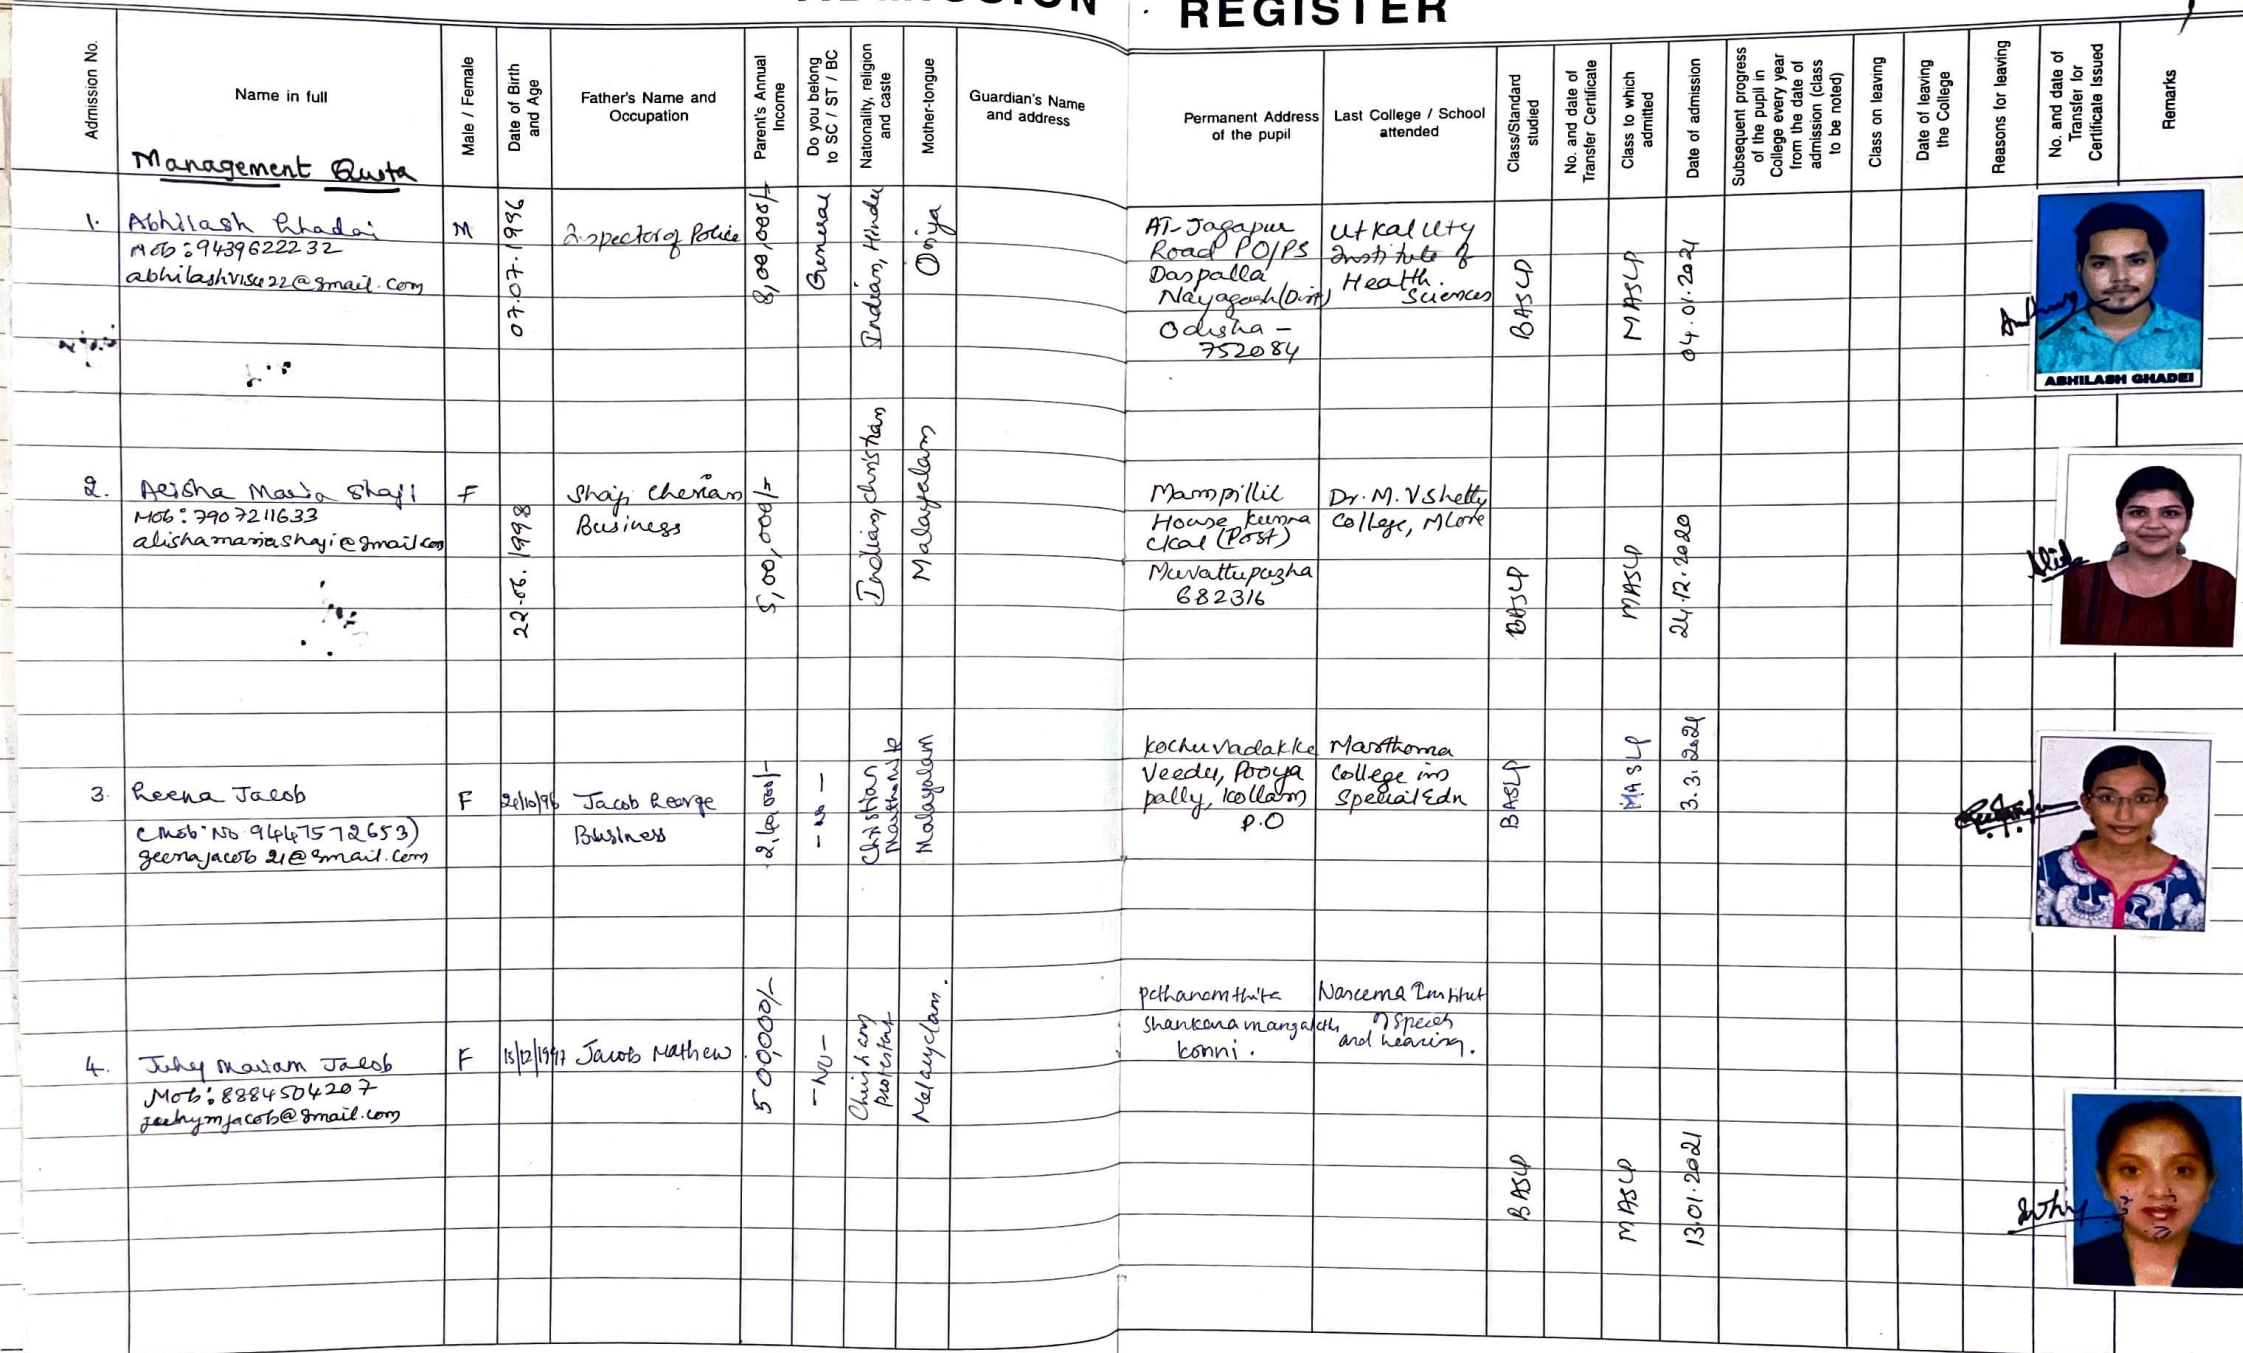 ADMISSION REGISTER
Admission No.
Name in full
Male / Female
Date of Birth
and Age
Father's Name and
Occupation
Parent's Annual
Income
Do you belong
to SC / ST / BC
Nationality, religion
and caste
Mother-tongue
Guardian's Name
and address
Permanent Address
of the pupil
Last College / School
attended
Class/Standard
studied
No. and date of
Transfer Certificate
Class to which
admitted
Date of admission
Subsequent progress
of the pupil in
College every year
from the date of
admission (class
to be noted)
Class on leaving
Date of leaving
the College
Reasons for leaving
No. and date of
Transfer for
Certificate Issued
Remarks
Management Quota
1.
Abhilash Ghadai
Mob: 9439622232
abhilashvisu22@gmail.com
M
07.07.1996
Inspector of Police
8,00,000/-
General
Indian, Hindu
Oriya
AT-Jagapur
Road PO/PS
Daspalla
Nayagarh(Dist)
Odisha -
752084
Utkal Uty
Institute of
Health
Sciences
BASLP
MASLP
04.01.2021
ABHILASH GHADEI
2.
Alisha Maria Shaji
Mob: 7907211633
alishamariashaji@gmail.com
F
22.06.1998
Shaji Cherian
Business
5,00,000/-
Indian, christian
Malayalam
Mampillil
House, kunna
ckal (Post)
Muvattupuzha
682316
Dr. M. V Shetty
College, Mlore
BASLP
MASLP
24.12.2020
3.
Geena Jacob
(Mob: No 9447572653)
geenajacob21@gmail.com
F
Jacob George
Business
Christian
Marthomite
Malayalam
kochuvadakke
Veedu, Pooya
pally, Kollam
P.O
Marthoma
College in
Special Edn
BASLP
MASLP
3.3.2021
4.
Juhy Mariam Jacob
Mob: 8884504207
juhymjacob@gmail.com
F
15/12/1997
Jacob Mathew
500000/-
-NO-
Christian
protestant
Malayalam.
pathanamthita
Shankaramangalath
konni.
Naseema Institut
of Speech
and hearing.
BASLP
MASLP
13.01.2021